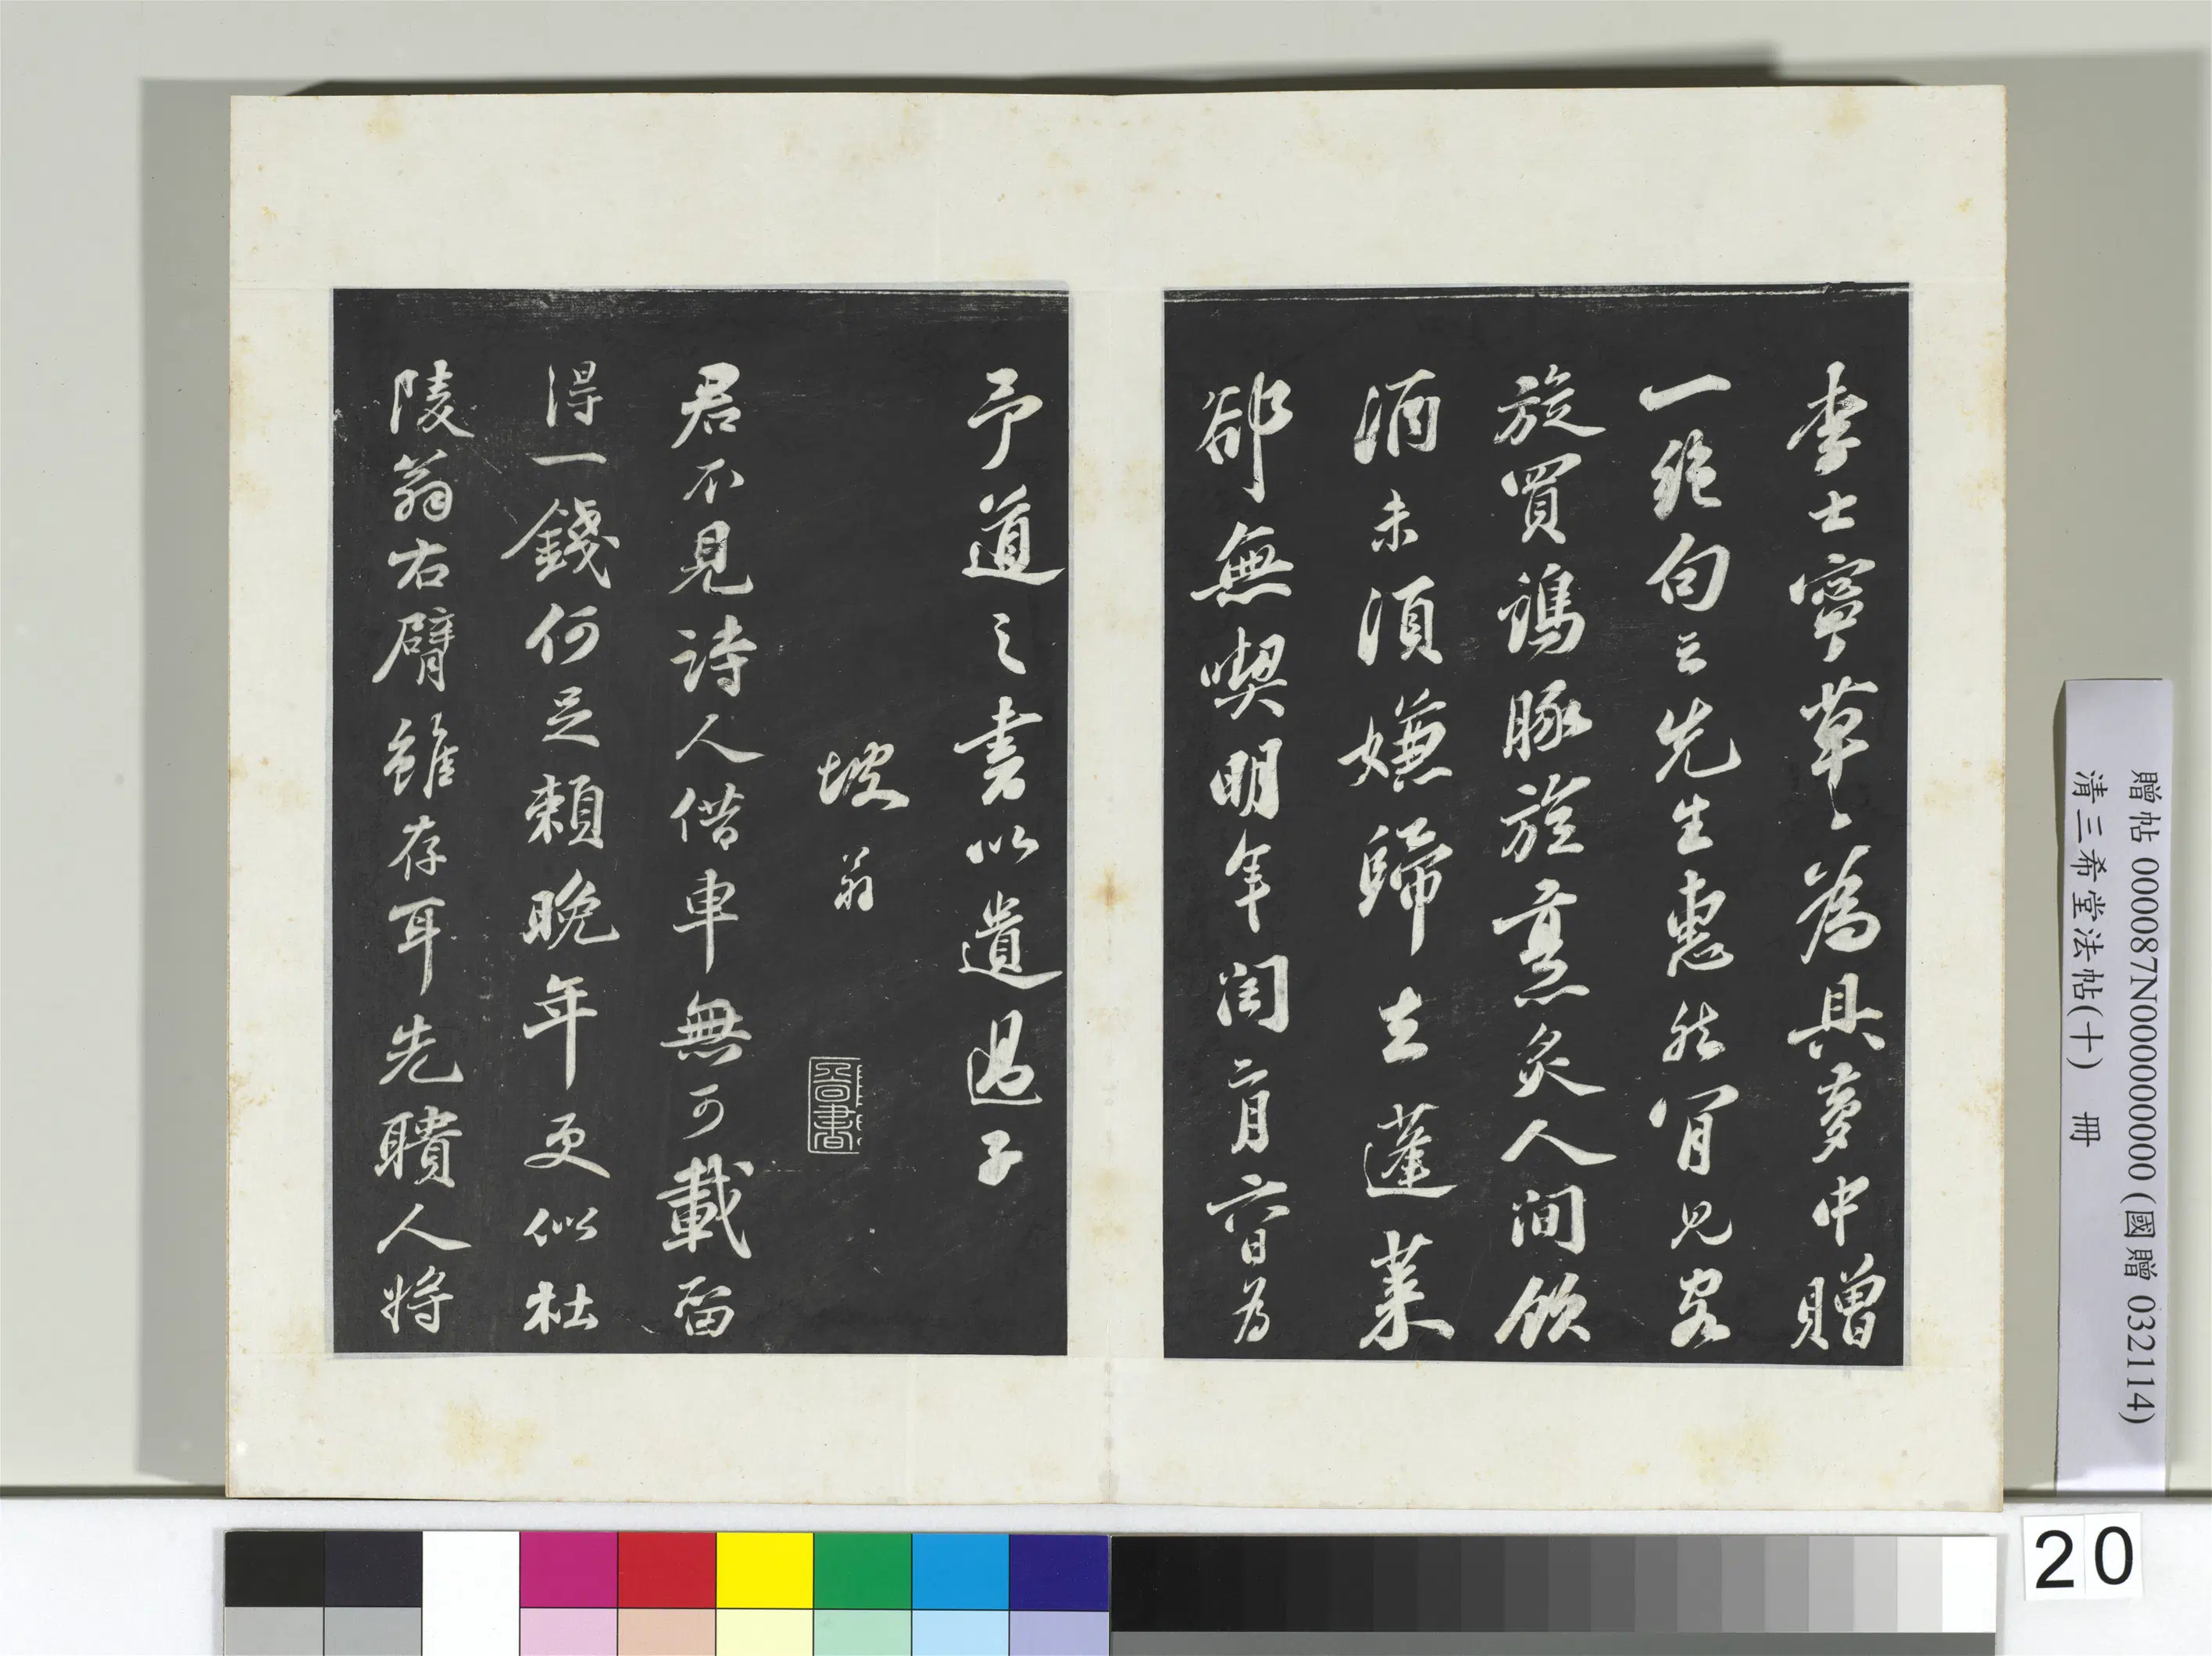 李士寧草々為具夢中贈
一絕句云先生惠然肯見客
旋買鷄豚旋烹炙人間飲
酒未須嫌歸去蓬萊
卻無喫明年閏二月六日為
予道之書以遺過子
坡翁
君不見詩人借車無可載留
得一錢何足賴晚年更似杜
陵翁右臂雖存耳先聵人將
贈帖 000087N000000000 (國贈 032114)
清三希堂法帖(十) 冊
20